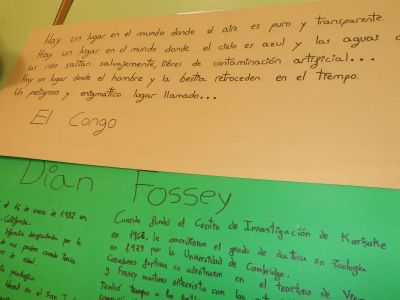 Hay un lugar en el mundo donde el aire es puro y transparente.
Hay un lugar en el mundo donde el cielo es azul y las aguas
saltan salvajemente, libres de contaminación artificial...
Hay un lugar donde el hombre y la bestia retroceden en el tiempo.
Un peligroso y enigmático lugar llamado...
El Congo
Dian Fossey
el 16 de enero de 1932 en
California.
infancia desgraciada por la
de sus padres cuando tenía
de edad.
Cuando fundó el Centro de Investigación de Karisoke
en 1968, le concedieron el grado de doctora en Zoología
en 1974 por la Universidad de Cambridge.
Cazadores furtivos se adentraron en el territorio de
y Fossey mantuvo entrevista con las
tiempo a los